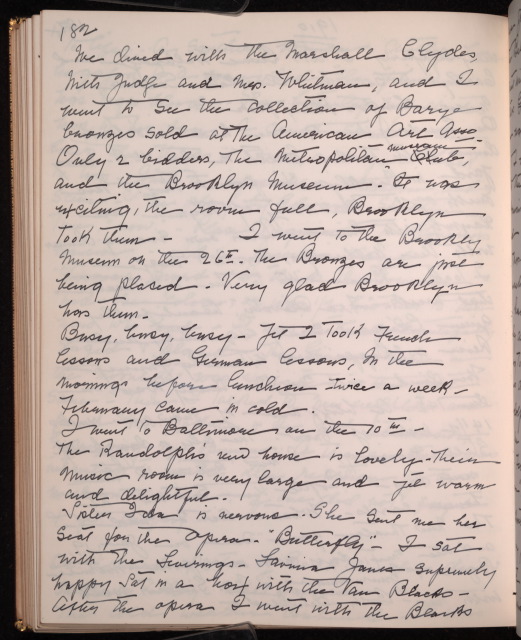 182
We dined with the Marshall Clydes,
with Judge and Mrs. Whitman, and I
went to see the collection of Barye
bronzes sold at the American Art Asso-
Only 2 bidders, the Metropolitan Museum Club,
and the Brooklyn Museum. It was
exciting, the room full, Brooklyn
Took them - I went to the Brookly
Museum on the 26th. The Bronzes are just
being placed. Very glad Brooklyn
has them.
Busy, busy, busy - Yet I Took French
lessons and German lessons, in the
mornings before luncheon twice a week -
February came in cold.
I went to Baltimore on the 10th -
The Randolphs new house is lovely - Their
Music room is very large and yet warm
and delightful.
Sister is nervous. She sent me her
Seat for the Opera - "Butterfly" - I sat
with the - Lavinia supremely
happy Sat in a box with the Van Blacks -
After the opera I went with the Blacks